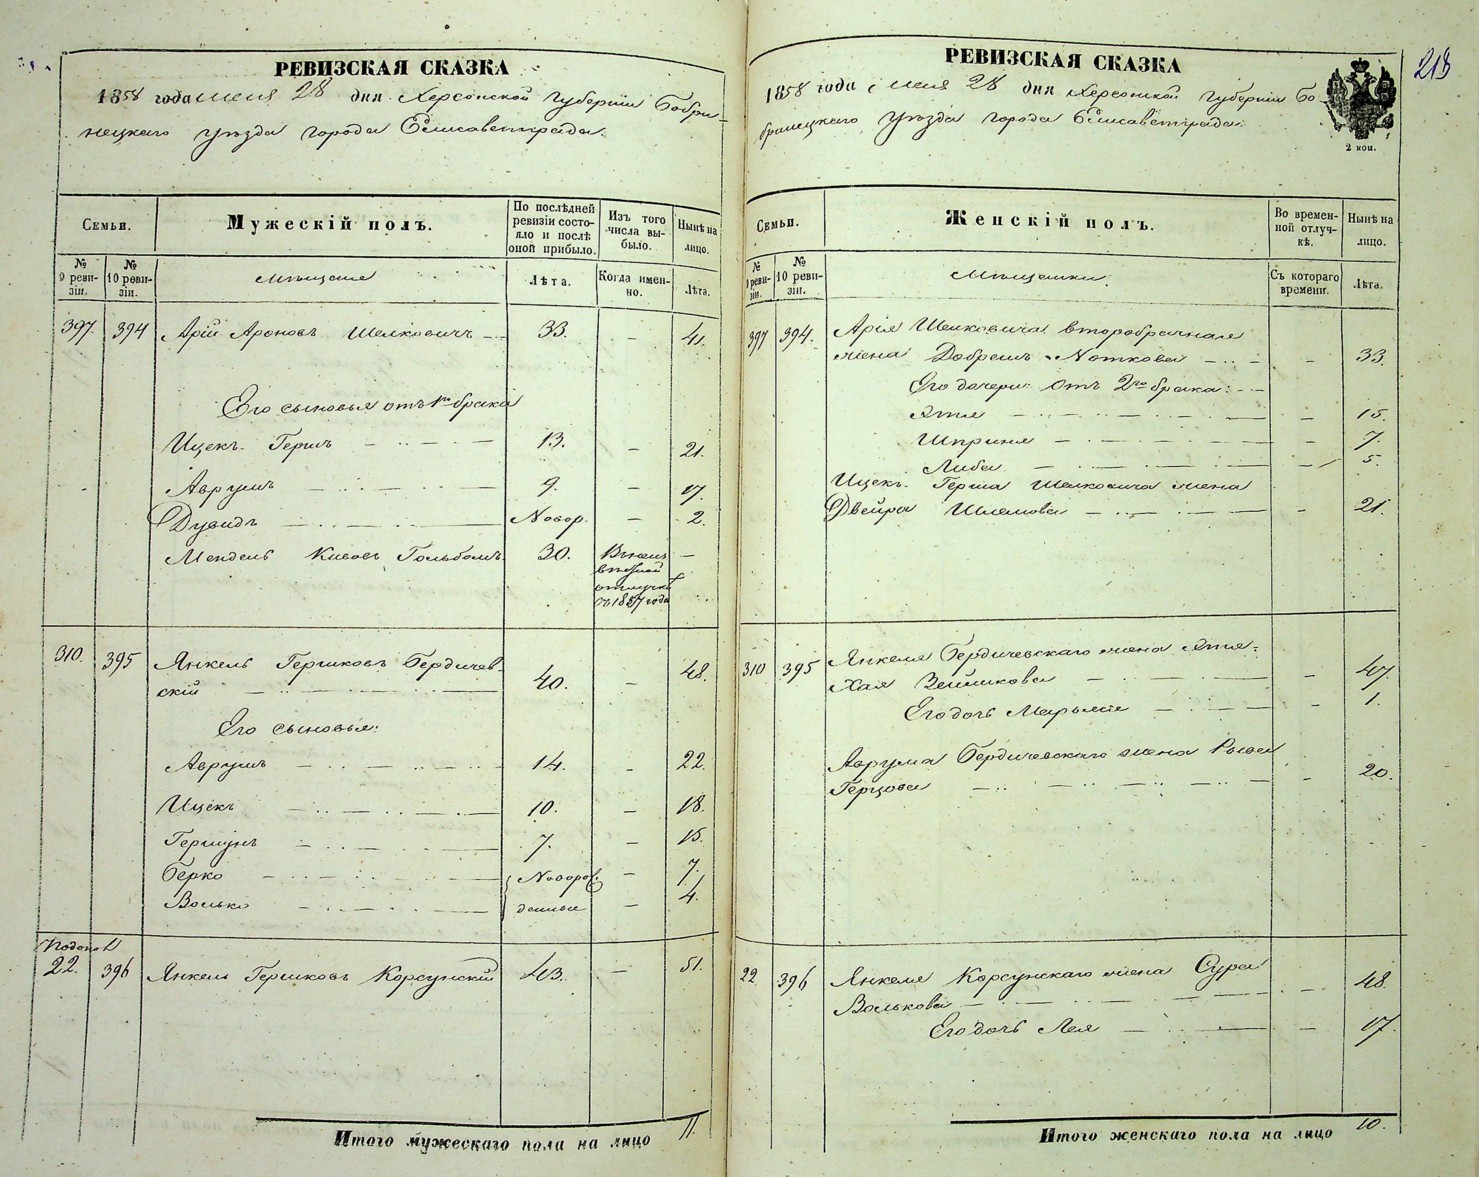 РЕВИЗСКАЯ СКАЗКА
1858 года июня 28 дня Херсонской губернии Бобри-
нецкого уѣзда города Елисаветграда.
Семьи.
Мужескій полъ.
По послѣдней
ревизіи состо-
яло и послѣ
оной прибыло.
Изъ того
числа вы-
было.
Нынѣ на
лицо.
№
9 реви-
зіи.
№
10 реви-
зіи.
Мѣщане
Лѣта.
Когда имен-
но.
Лѣта.
397. 394 Арій Ароновъ Шелковичъ 33. 41.
Его сыновья отъ 1го брака
Ицекъ Гершъ 13. 21.
Аврумъ 9. 17.
Дувидъ Новор. 2.
Мендель Кивовъ 30.
отлучкѣ
съ 1857 года
310. 395 Янкель Гершковъ Бердичев-
скій 40. 48.
Его сыновья:
Аврумъ 14. 22.
Ицекъ 10. 18.
Гершунъ 7. 15.
Берко Новорож- 7.
Волько денные 4.
22. 396 Янкель Гершковъ Корсунскій 43. 51.
Итого мужескаго пола на лицо 11.
РЕВИЗСКАЯ СКАЗКА
218
1858 года июня 28 дня Херсонской губернии Бо-
бринецкаго уѣзда города Елисаветграда.
2 коп.
Семьи.
Женскій полъ.
Во времен-
ной отлуч-
кѣ.
Нынѣ на
лицо.
№
9 реви-
зіи.
№
10 реви-
зіи.
Мѣщанки.
Съ котораго
времени.
Лѣта.
397 394. Арія Шелковича второбрачная
жена ДобрешъНоткова 33.
Его дочери: отъ 2го брака:
Этля 15.
Шприня 7.
Либа 5.
Ицекъ Герша Шелковича жена
Двейра Шлемова 21.
310 395 Янкеля Бердичевскаго жена Этля-
Хая Зейликова 47.
Его дочь Марьяся 1.
Аврума Бердичевскаго жена Рыся
Герцова 20.
22 396 Янкеля Корсунскаго жена Сура
Волькова 48.
Его дочь Лея 17.
Итого женскаго пола на лицо 10.